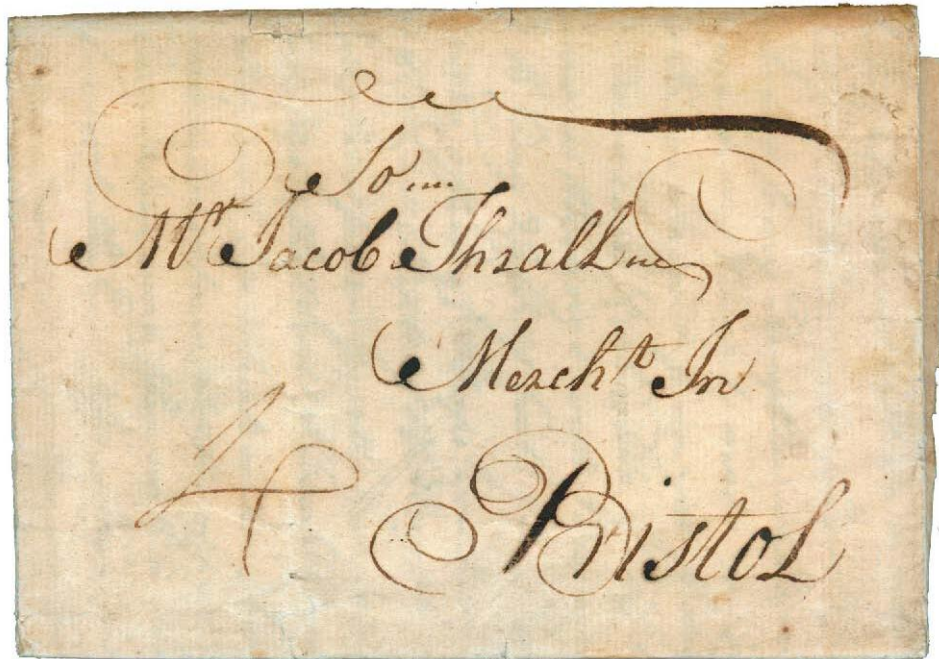 To
Mr Jacob Thrall
Mercht In
4 Bristol